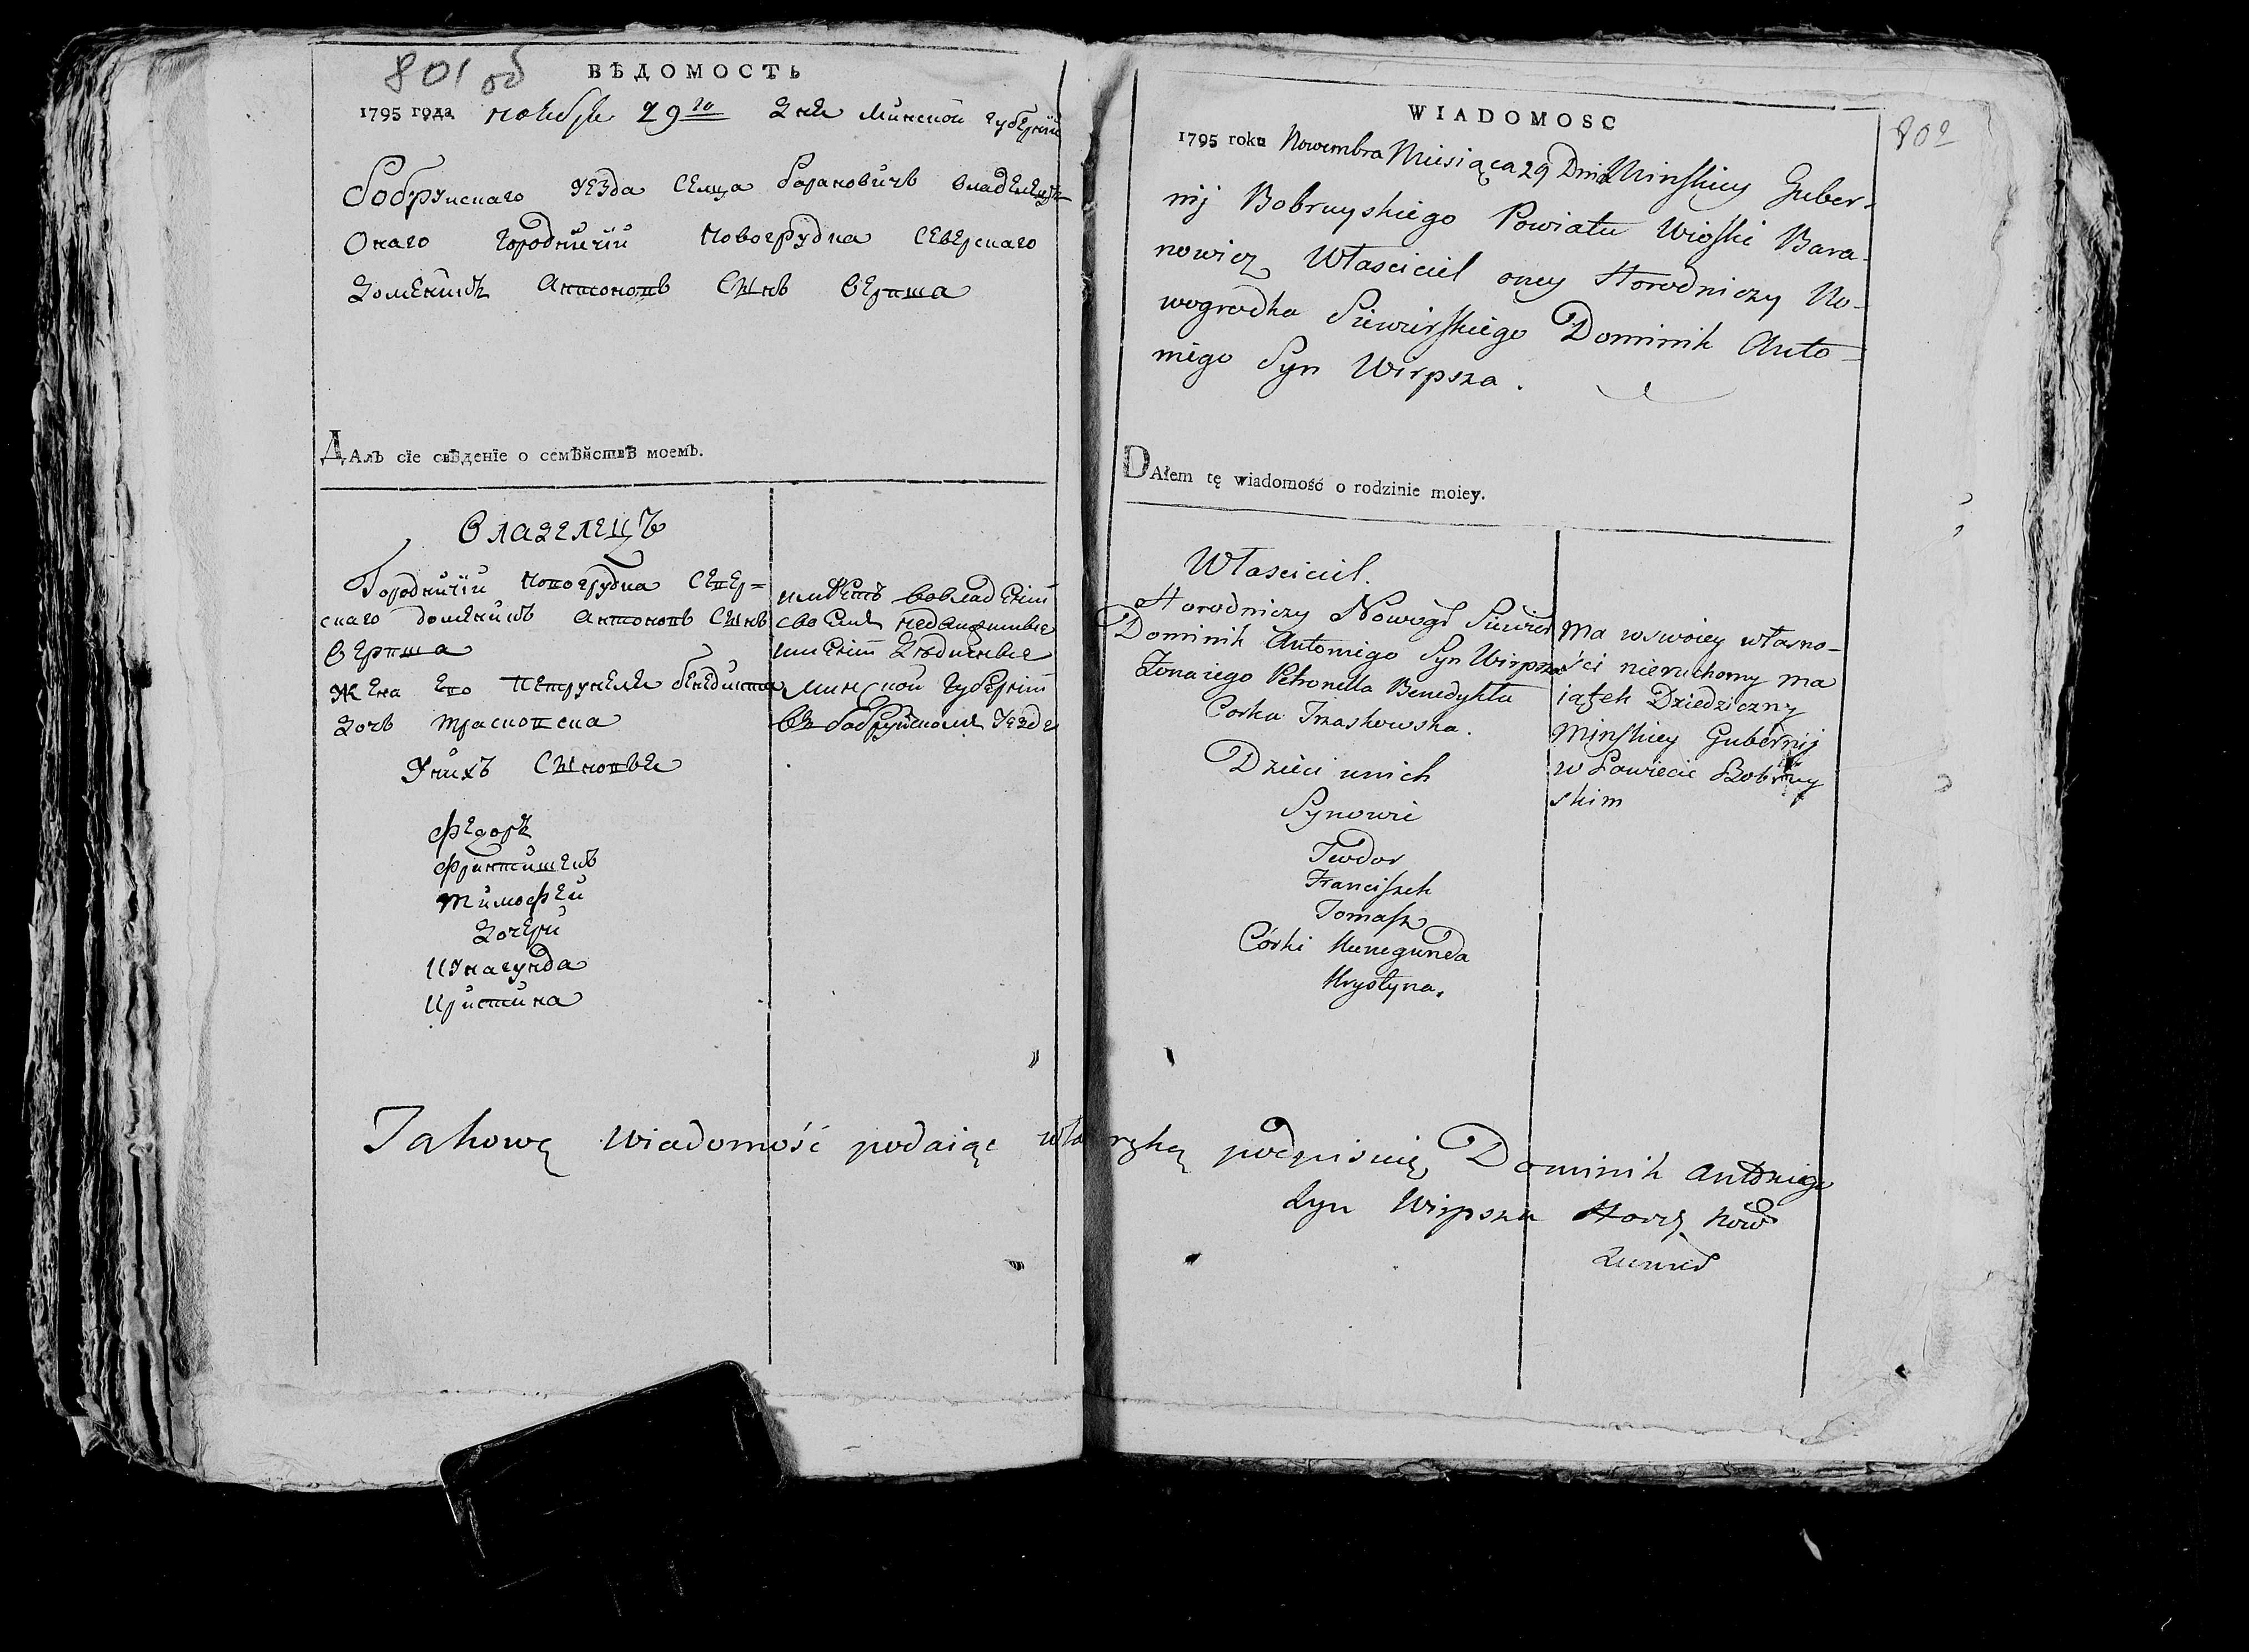 801 об
ВѢДОМОСТЬ
1795 года ноября 29го дня минской губернїи
бобруискаго уезда селца барановичъ владелецъ
онаго городничїи новогрудка северскаго
доменикъ антоновъ сынъ верпша
ДАлЪ сїе свѢденїе о семѢйствѢ моемЪ.
владелецъ
Городничїи новогрудка север=
скаго доменикъ антоновъ сынъ
верпша
жена его петрунеля бенедикта
дочь трасковска
У нихъ сыновья
федоръ
францишекъ
тимофеи
дочери
кунагунда
кристина
имѣетъ вовладении
своемъ недвижимые
имении
минской губернии
въ бобруйскомъ уезде
WIADOMOSC
802
1795 roku Nowembra Miesiąca 29 Dnia Minskiey Guber-
nij Bobruyskiego Powiatu Wioski Bara-
nowicz Własciciel oney Horodniczy No-
wogrodka Siewierskiego Dominik Anto-
niego Syn Wirpsza.
DAłem tę wiadomość o rodzinie moiey.
Własciciel.
Horodniczy Nowogr Siewier
Dominik Antoniego Syn Wirpsza
Żona iego Petronella Benedykta
Corka Traskowska.
Dzieci unich
Synowie
Teodor
Franciszek
Tomasz
Córki Kunegunda
Krystyna.
ma wswoiey własno-
ści nieruchomy ma
iątek Dziedziczny
Minskiey Gubernij
w Powiecie Bobruy
skim
Takową wiadomość podaiąc wła ręką podpisuię Dominik Antoniego
Syn Wirpsza Horo Now
Siewier